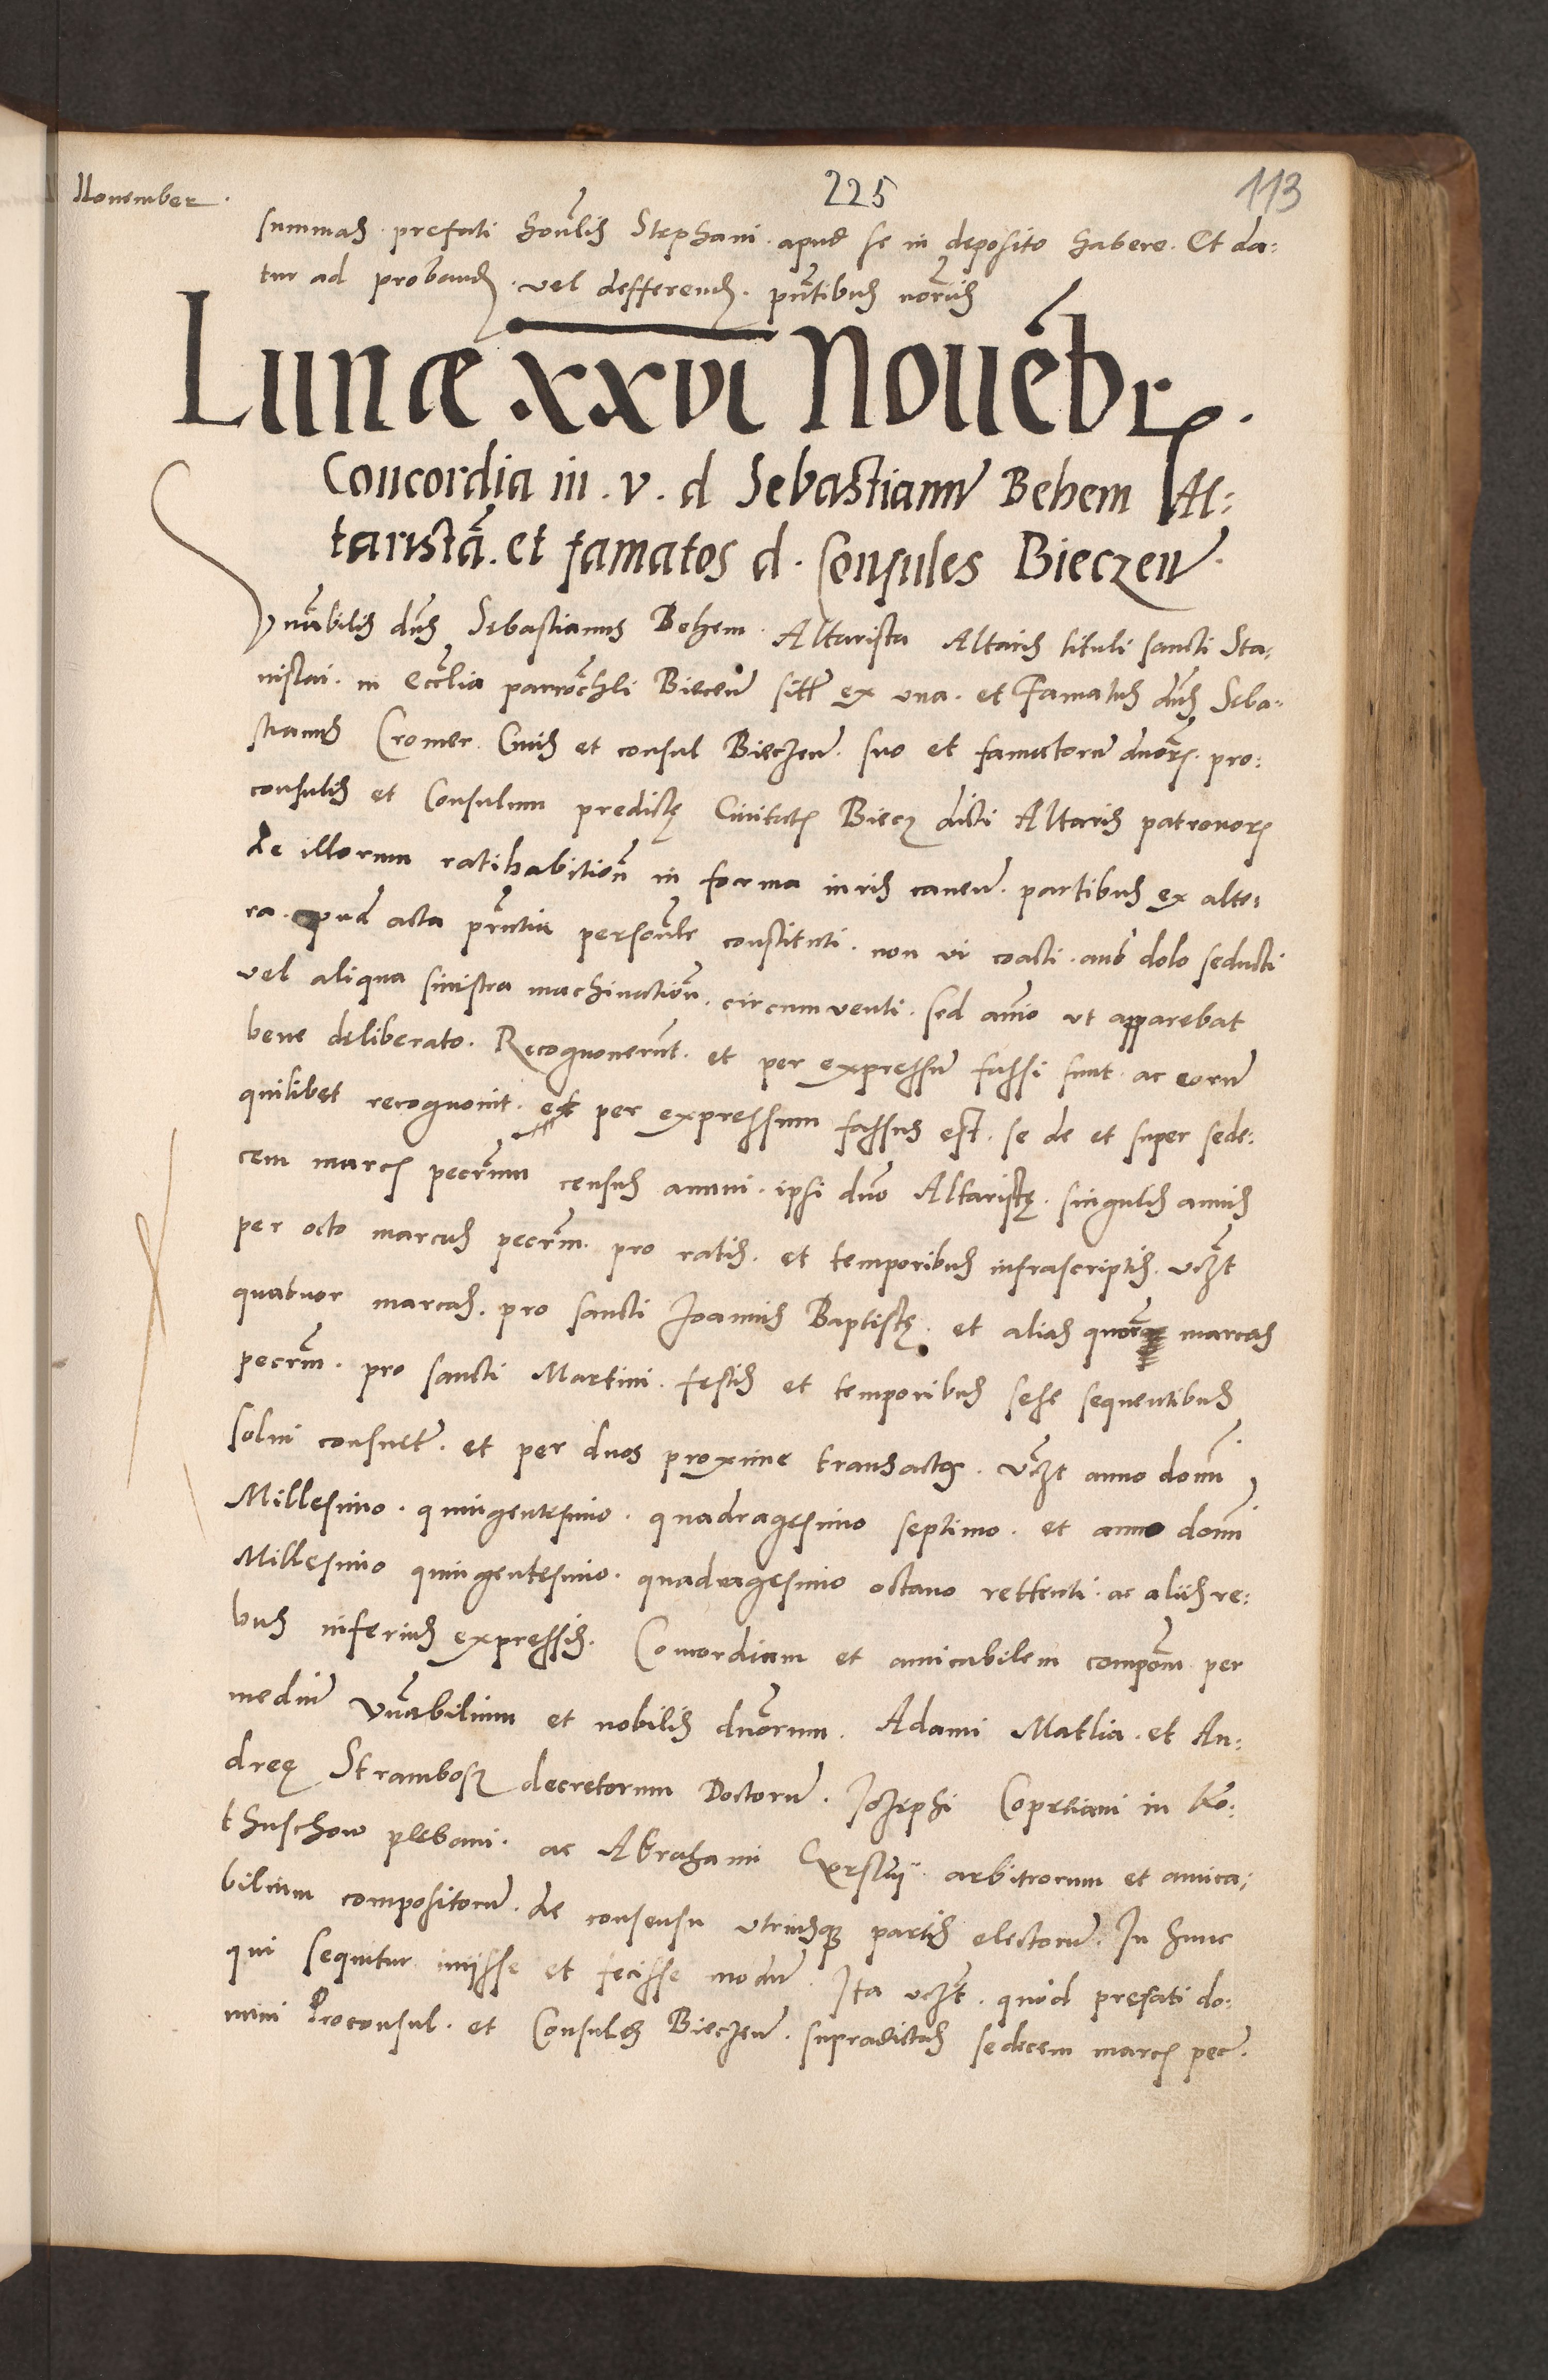 November.
225
113
summas. prefati hon̄lis Stephani. apud se in deposito habere. Et da:
tur ad proband. vel defferend. pn̄tibus nōriis
Lunæ xxvi Nouēbr.
Concordia in. v. d Sebastianū Behem Al:
taristā. et famatos d. Consules Bieczeñ.
Vn̄abilis dn̄s Sebastianus Behem. Altarista Altaris tituli sancti Sta:
nislai. in Eccl̄ia parroch̄li Bieceñ sitt̄ ex vna. et Famatus dn̄s Seba:
stianus Cromer. Ciuis et consul Bieczeñ. suo et famatorū dn̄or. pro:
consulis et Consulum predictę Ciuitatis Biecz dicti Altaris patronor
de illorum ratihabitiōn in forma iuris caueñ. partibus ex alte:
ra. apud acta pn̄tia person̄lr constituti. non vi coacti. aut dolo seducti
vel aliqua sinistra machinatiōn. circumuenti. sed aīo vt apparebat
bene deliberato. Recognouerūt. et per expressū fassi sunt. ac eorū
quilibet recognouit. et per expressum fassus est. se de et super sede:
cem marcis pecn̄ium census annui. ipsi dn̄o Altaristę. singulis annis
per octo marcas pecn̄m. pro ratis. et temporibus infrascriptis. vczt̄
quatuor marcas. pro sancti Joannis Baptistę. et alias quōr marcas
pecn̄m. pro sancti Martini. festis et temporibus sese sequentibus
solui consuet̄. et per duos proxime transactos. vczt̄ anno domī
Millesimo. quingentesimo. quadragesimo septimo. et anno domī
Millesimo quingentesimo. quadragesimo octauo rettenti. ac aliis re:
bus inferius expressis. Concordiam et amicabilem compōm per
mediū Vn̄abilium et nobilis dn̄orum. Adami Matlia. et An:
dreę Strambosz decretorum Doctorū. Jozephi Copetiani in Ko:
thuschow plebani. ac Abrahami arbitrorum et amica:
bilium compositorū. de consensu vtriusque partis electorū. In hunc
qui sequitur iniisse et fecisse modū. Ita vczt̄. quod prefati do:
mini Proconsul. et Consules Bieczeñ. supradictas sedecem marcis pec̄.